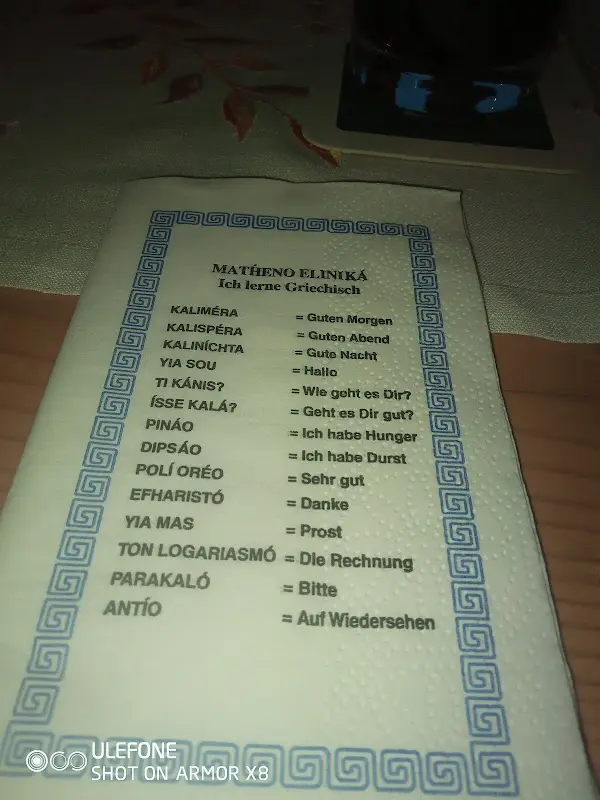 MATHENO ELINIKÁ
Ich lerne Griechisch
KALIMÉRA = Guten Morgen
KALISPÉRA = Guten Abend
KALINÍCHTA = Gute Nacht
YIA SOU = Hallo
TI KÁNIS? = Wie geht es Dir?
ÍSSE KALÁ? = Geht es Dir gut?
PINÁO = Ich habe Hunger
DIPSÁO = Ich habe Durst
POLÍ ORÉO = Sehr gut
EFHARISTÓ = Danke
YIA MAS = Prost
TON LOGARIASMÓ = Die Rechnung
PARAKALÓ = Bitte
ANTÍO = Auf Wiedersehen
ULEFONE
SHOT ON ARMOR X8